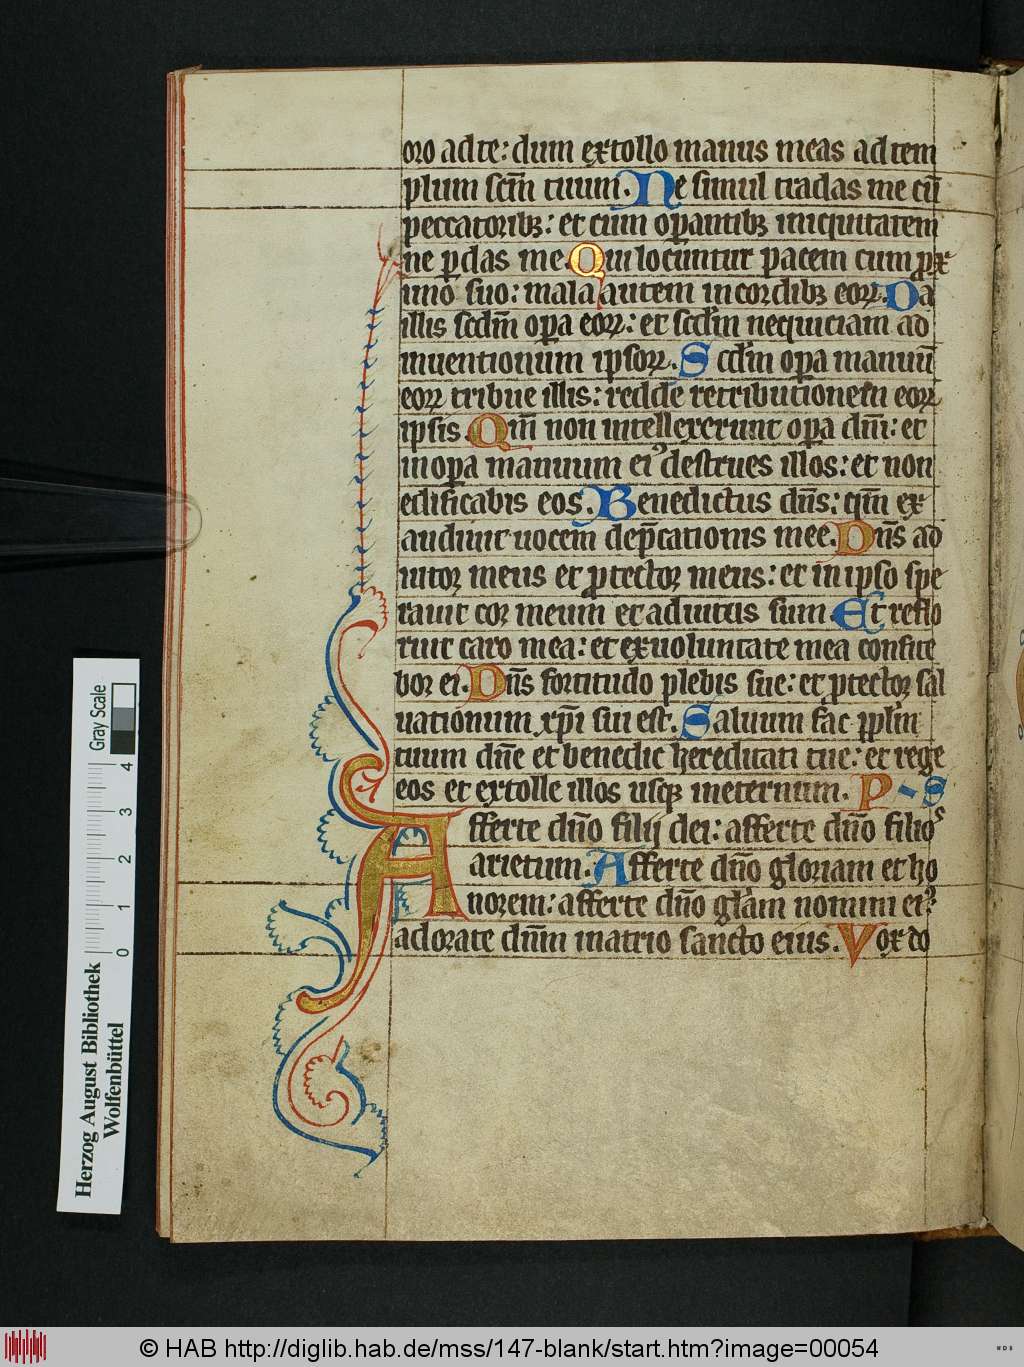 oro ad te: dum extollo manus meas ad tem
plum scm̄ tuum. Ne simul tradas me cū
peccatoribꝫ: et cum oꝑantibꝫ iniquitatem
ne ꝑdas me. Qui locuntur pacem cum ꝓx
imo suo: mala autem in cordibꝫ eoꝝ. Da
illis scdm̄ oꝑa eoꝝ: et scdm̄ nequiciam ad
inuentionum ipsoꝝ. Scdm̄ oꝑa manuū
eoꝝ tribue illis: redde retributionem eoꝝ
ipsis. Qm̄ non intellexerunt oꝑa dn̄i: et
in oꝑa manuum ei᾽ destrues illos: et non
edificabis eos. Benedictus dn̄s: qm̄ ex
audiuit uocem dep̄cationis mee. Dn̄s ad
iutor meus et ꝓtector meus: et in ipso spe
rauit cor meum et adiutus sum. Et reflo
ruit caro mea: et ex uoluntate mea confite
bor ei. Dn̄s fortitudo plebis sue: et ꝓtector sal
uationum xp̄i sui est. Saluum fac pplm̄
tuum dn̄e et benedic hereditati tue: et rege
eos et extolle illos usqꝫ in eternum. P - S
Afferte dn̄o filij dei: afferte dn̄o filios
arietum. Afferte dn̄o gloriam et ho
norem: afferte dn̄o gl̄am nomini ei᾽:
adorate dn̄m in atrio sancto eius. Vox do
Herzog August Bibliothek
Wolfenbüttel
0 1 2 3 4
Gray Scale
© HAB http://diglib.hab.de/mss/147-blank/start.htm?image=00054